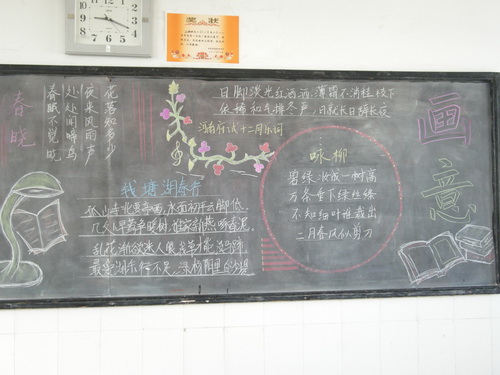 奖状
春晓
春眠不觉晓
处处闻啼鸟
夜来风雨声
花落知多少
日脚淡光红洒洒，薄霜不消桂枝下
依稀和气排冬严，已就长日辞长夜
河南府试十二月乐词
画意
钱塘湖春行
孤山寺北贾亭西，水面初平云脚低。
几处早莺争暖树，谁家新燕啄春泥。
乱花渐欲迷人眼，浅草才能没马蹄
最爱湖东行不足，绿杨阴里白沙堤
咏柳
碧绿妆成一树高
万条垂下绿丝绦
不知细叶谁裁出
二月春风似剪刀